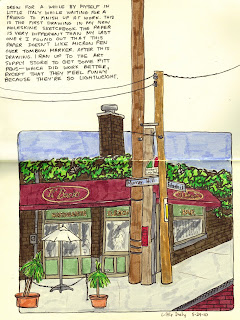 DREW FOR A WHILE BY MYSELF IN
LITTLE ITALY WHILE WAITING FOR A
FRIEND TO FINISH UP AT WORK. THIS
IS THE FIRST DRAWING IN MY NEW
MOLESKINE SKETCHBOOK. THE PAPER
IS VERY DIFFERENT THAN MY LAST
ONE & I FOUND OUT THAT THIS
PAPER DOESN'T LIKE MICRON PEN
OVER TOMBOW MARKER. AFTER THIS
DRAWING I RAN UP TO THE ART
SUPPLY STORE TO GET SOME PITT
PENS—WHICH DID WORK BETTER,
EXCEPT THAT THEY FEEL FUNNY
BECAUSE THEY'RE SO LIGHTWEIGHT.
Murray Hill
Little Italy 5-29-10